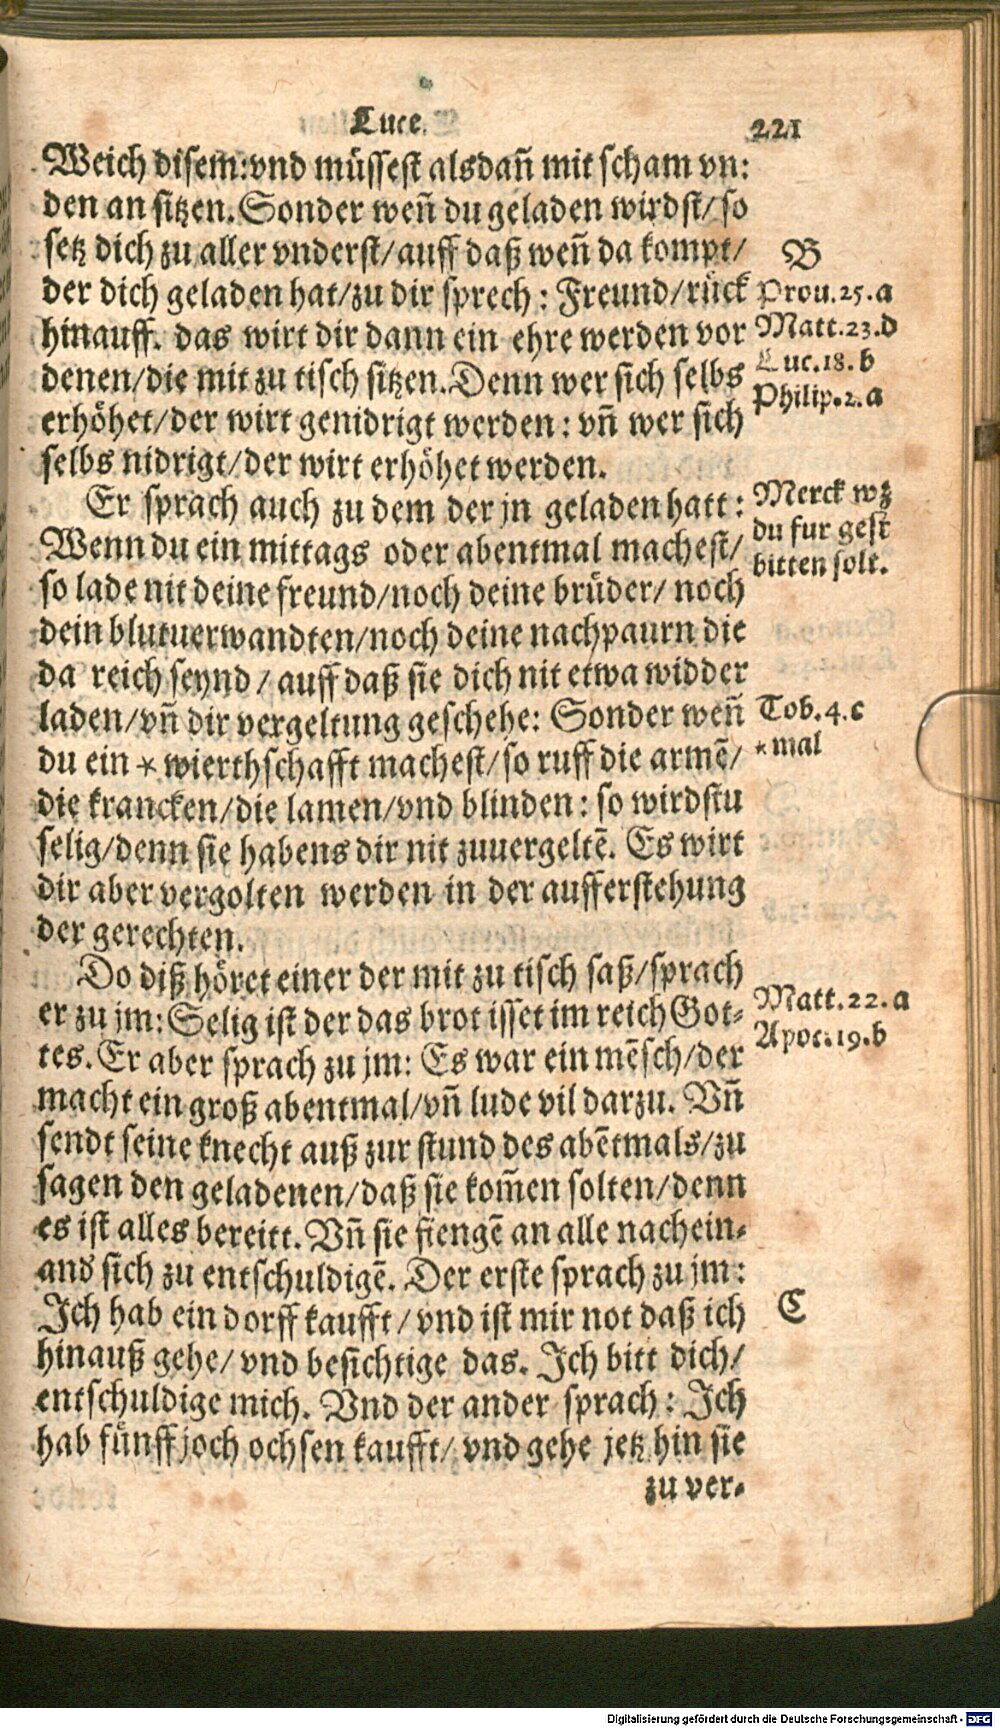 Luce. 221
Weich disem: vnd müssest alsdañ mit scham vn:
den an sitzen. Sonder weñ du geladen wirdst/ so
setz dich zu aller vnderst/ auff daß weñ da kompt/
der dich geladen hat/ zu dir sprech: Freund/ rück
hinauff. das wirt dir dann ein ehre werden vor
denen/ die mit zu tisch sitzen. Denn wer sich selbs
erhöhet/ der wirt genidrigt werden: vñ wer sich
selbs nidrigt/ der wirt erhöhet werden.
B
Prou. 25. a
Matt. 23. d
Luc. 18. b
Philip. 2. a
Er sprach auch zu dem der jn geladen hatt:
Wenn du ein mittags oder abentmal machest/
so lade nit deine freund/ noch deine brüder/ noch
dein blutuerwandten/ noch deine nachpaurn die
da reich seynd/ auff daß sie dich nit etwa widder
laden/ vñ dir vergeltung geschehe: Sonder weñ
du ein * wierthschafft machest/ so ruff die armẽ/
die krancken/ die lamen/ vnd blinden: so wirdstu
selig/ denn sie habens dir nit zuuergeltẽ. Es wirt
dir aber vergolten werden in der aufferstehung
der gerechten.
Merck wz
du fur gest
bitten solt.
Tob. 4. c
* mal
Do diß höret einer der mit zu tisch saß/ sprach
er zu jm: Selig ist der das brot isset im reich Got-
tes. Er aber sprach zu jm: Es war ein mẽsch/ der
macht ein groß abentmal/ vñ lude vil darzu. Vñ
sendt seine knecht auß zur stund des abẽtmals/ zu
sagen den geladenen/ daß sie kom̃en solten/ denn
es ist alles bereitt. Vñ sie fiengẽ an alle nachein-
and sich zu entschuldigẽ. Der erste sprach zu jm:
Ich hab ein dorff kaufft/ vnd ist mir not daß ich
hinauß gehe/ vnd besichtige das. Ich bitt dich/
entschuldige mich. Vnd der ander sprach: Ich
hab fünff joch ochsen kaufft/ vnd gehe jetz hin sie
zu ver-
Matt. 22. a
Apoc. 19. b
C
Digitalisierung gefördert durch die Deutsche Forschungsgemeinschaft - DFG